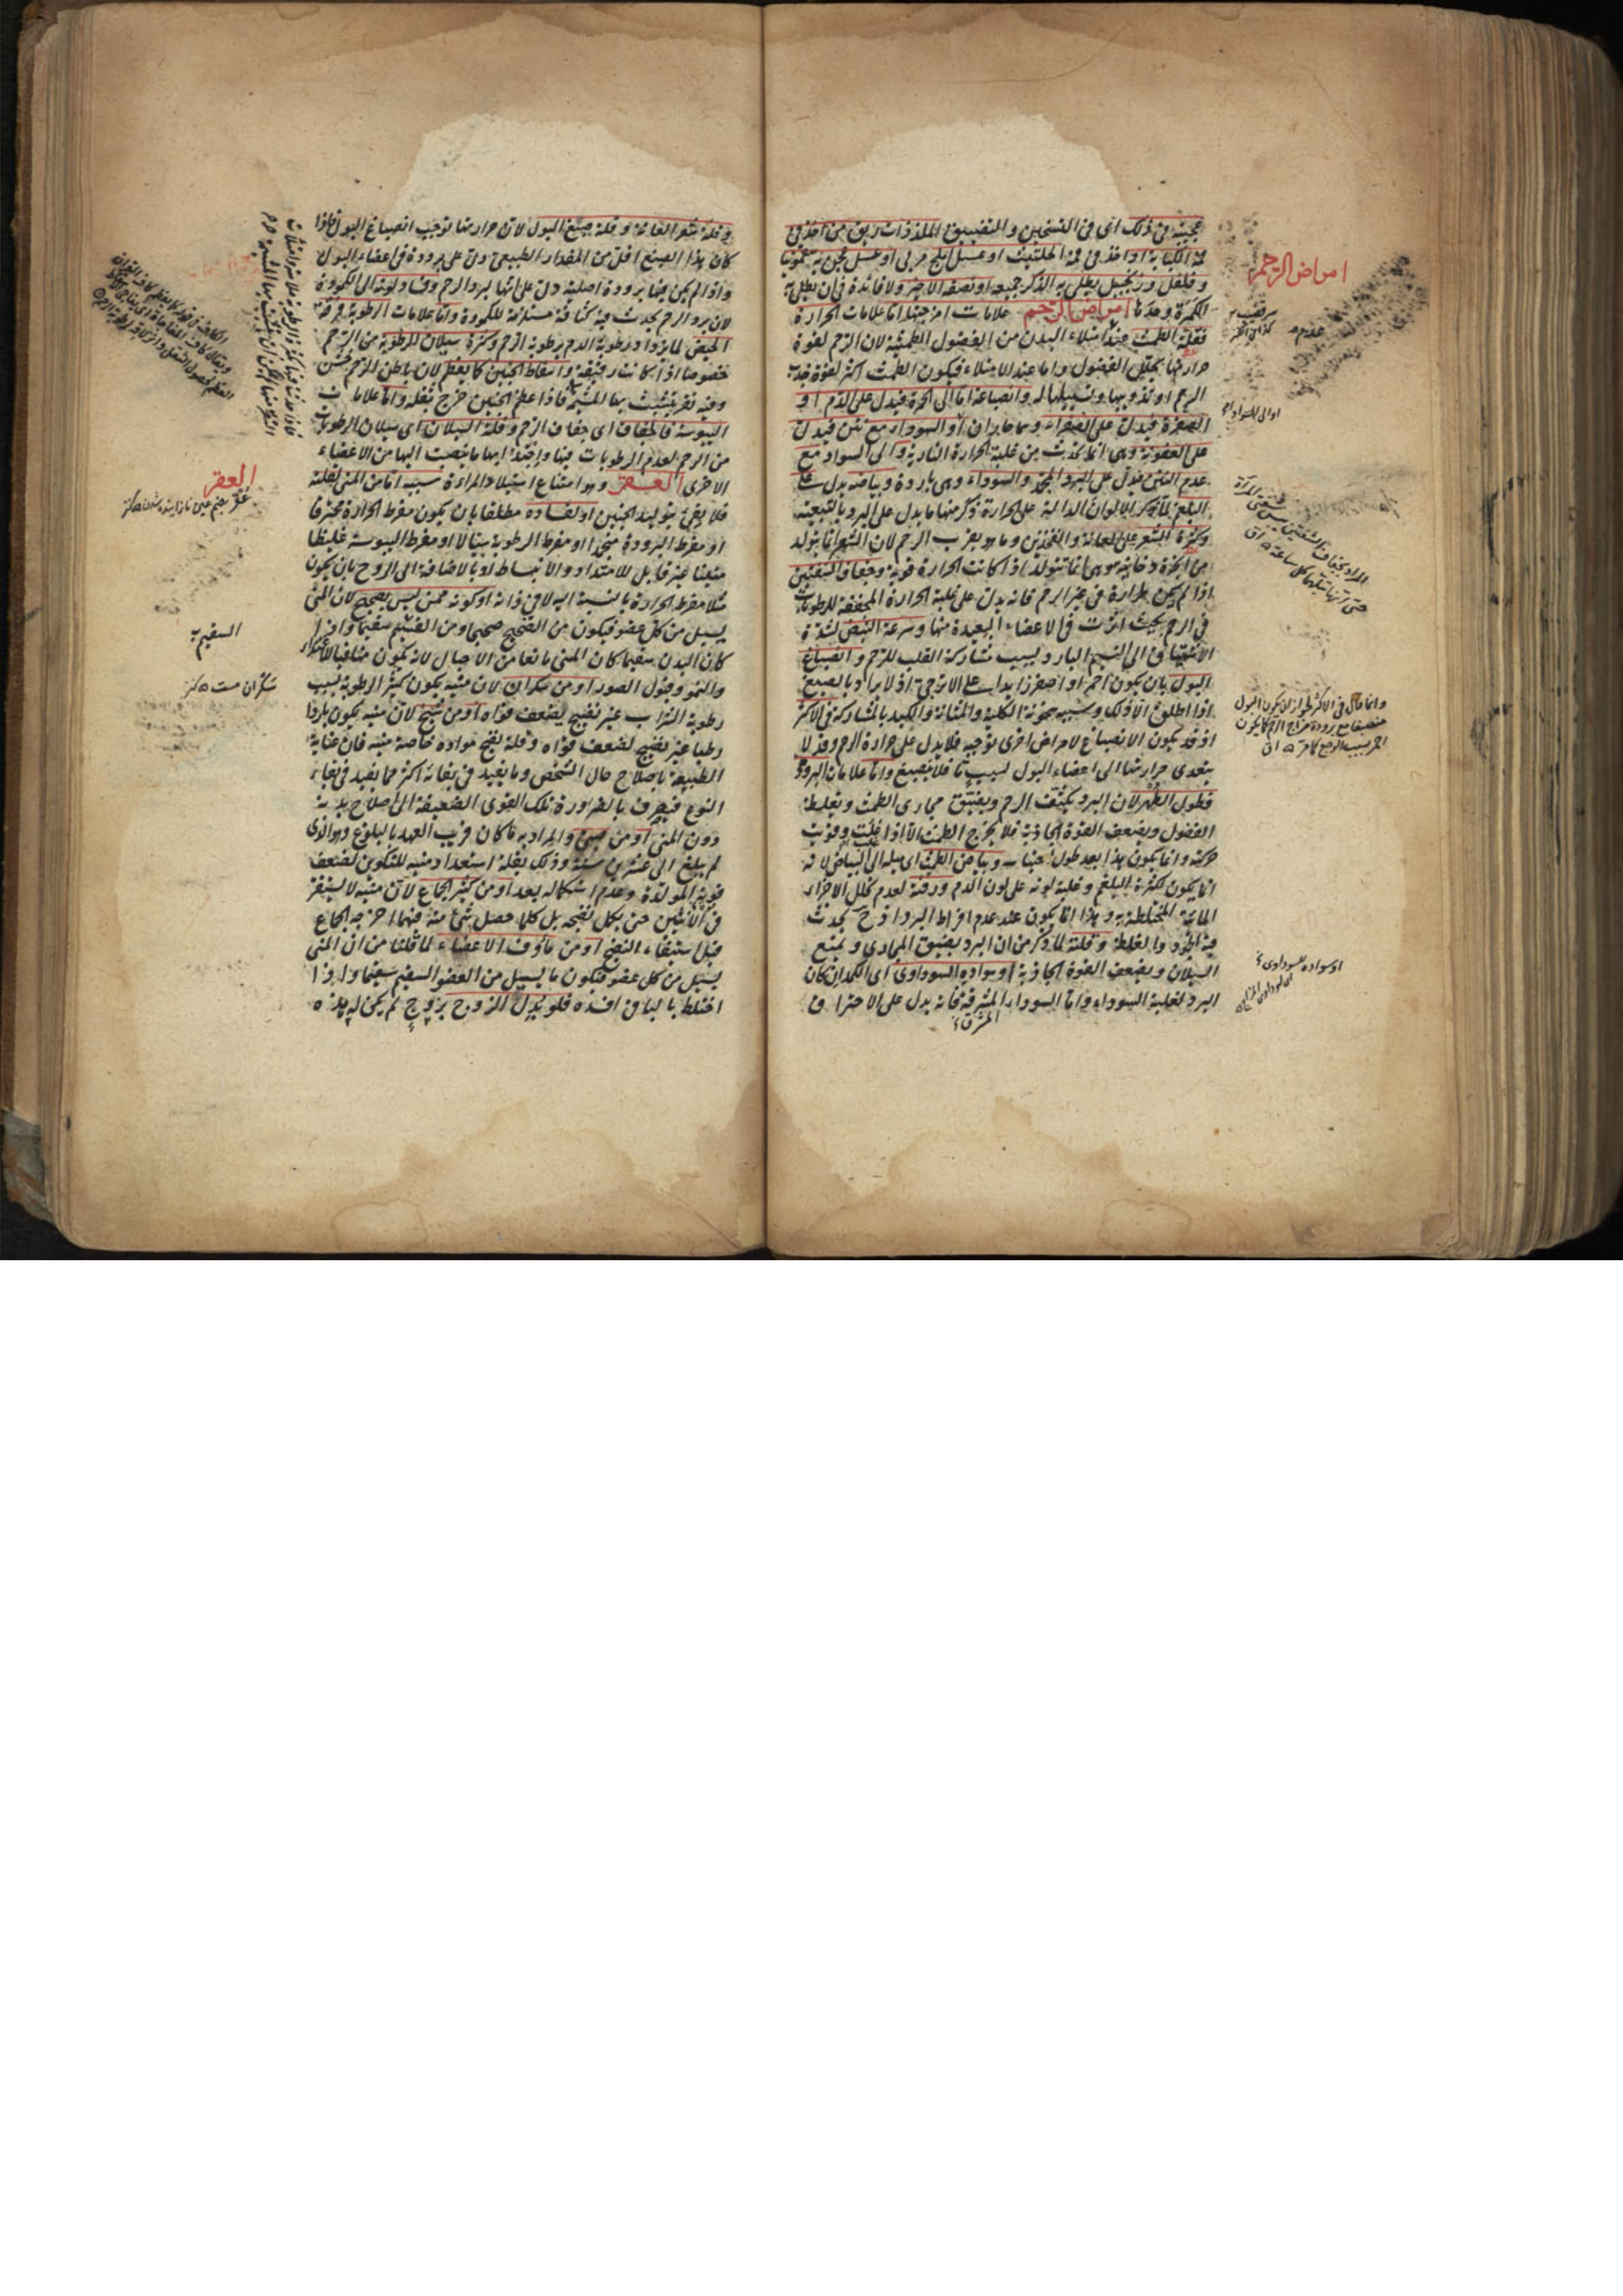 عجيبة فى ذلك اى فى التسخين والتضييق الملذذات ريق من اخذ فى
فمه الكبابة او اخذ فى فمه الحلتيت او عسل اهليلج مربى او عسل عجن به سقمونيا
وفلفل وزنجبيل يطلى به الذكر جميعه او نصفه الاخير ولا فائدة فى ان يطلى به
الكمرة وحدها امراض الرحم علامات امزجتها اما علامات الحرارة
فقلة الطمث عند امتلاء البدن من الفضول الطمثية لان الرحم لقوة
حرارتها يحلل الفضول واما عند الامتلاء فيكون الطمث اكثر لقوة جذب
الرحم او تذويبها وتسييلها له وانصباغه اما الى الحمرة فيدل على الدم او
الصفرة فيدل على الصفراء وهما حاران او السواد مع نتن فيدل
على العفونة وهى انما تحدث من غلبة الحرارة النارية والى السواد مع
عدم النتن فيدل على البرد المجمد والسوداء وهى باردة وبياضه يدل على
البلغم لما ذكر الالوان الدالة على الحرارة ذكر منها ما يدل على البرد بالتبعية
وكثرة الشعر على العانة والفخذين وما هو بقرب الرحم لان الشعر انما يتولد
من ابخرة دخانية وهى انما تتولد اذا كانت الحرارة قوية وجفاف الشفتين
اذا لم يكن حرارة فى غير الرحم فانه يدل على غلبة الحرارة المجففة للرطوبات
فى الرحم بحيث اثرت فى الاعضاء البعيدة منها وسرعة النبض لشدة
الاشتياق الى النسيم البارد بسبب مشاركة القلب للرحم وانصباغ
البول بان يكون احمر او اصفر زايدا على الاترجى اذ لا يراد بالصبغ
اذا اطلق الا ذلك وسببه سخونة الكلية والمثانة والكبد بالمشاركة فى الاكثر
اذ قد يكون الانصباغ لامراض اخرى توجبه فلا يدل على حرارة الرحم وقد لا
يتعدى حرارتها الى اعضاء البول لسبب ما فلا ينصبغ واما علامات البرودة
فطول الطهر لان البرد يكثف الرحم ويضيق مجارى الطمث ويغلظ
الفضول ويضعف القوة الجاذبة فلا يخرج الطمث الا اذا غلبت وقويت
حركته وانما يكون هذا بعد طول احتباسه وبياض الطمث اى ميله الى البياض لانه
انما يكون لكثرة البلغم وغلبة لونه على لون الدم ورقته لعدم تحلل الاجزاء
المائية المختلطة به وهذا انما يكون عند عدم افراط البرد اذ ح يحدث
فيه الجمود والغلظ وقلته لما ذكر من ان البرد يضيق المجارى ويمنع
السيلان ويضعف القوة الجاذبة او سواده السوداوى اى الكمد ان كان
البرد لغلبة السوداء واما السوداء المشرقة فانه يدل على الاحتراق
المشرق
امراض الرحم
وقلة شعر العانة وقلة صبغ البول لان حرارتها توجب انصباغ البول فاذا
كان هذا الصبغ اقل من المقدار الطبيعى دل على برودة فى اعضاء البول
واذا لم يكن فيها برودة اصلية دل على انها لبرد الرحم وفساد لونه الى الكمودة
لان برد الرحم يحدث فيه كثافة مستلزمة للكمودة واما علامات الرطوبة فرقة
الحيض لما يزداد رطوبة الدم برطوبة الرحم وكثرة سيلان الرطوبة من الرحم
خصوصا اذا كانت رقيقة واسقاط الجنين كما يعظم لان باطن الرحم خشن
وفيه نقر يتشبث بها المشيمة فاذا عظم الجنين خرج بثقله واما علامات
اليبوسة فالجفاف اى جفاف الرحم وقلة السيلان اى سيلان الرطوبات
من الرحم لعدم الرطوبات فيها واجتذابها ما ينصب اليها من الاعضاء
الاخرى العقر وهو امتناع استيلاد المراءة سببه اما من المنى لقلته
فلا يفى بتوليد الجنين او لفساده مطلقا بان يكون مفرط الحرارة محترقا
او مفرط البرودة منجمدا او مفرط الرطوبة سيالا او مفرط اليبوسة غليظا
متينا غير قابل للامتداد والانبساط او بالاضافة الى الزوج بان يكون
مثلا مفرط الحرارة بالنسبة اليه لا فى ذاته او كونه ممن ليس بصحيح لان المنى
يسيل من كل عضو فيكون من الصحيح صحيحا ومن السقيم سقيما واذا
كان البدن سقيما كان المنى مانعا من الاحبال لانه يكون منافيا للامتداد
والنمو وقبول الصور او من سكران لان منيه يكون كثير الرطوبة بسبب
رطوبة الشراب غير نضيج لضعف قواه او من شيخ لان منيه يكون باردا
رطبا غير نضيج لضعف قواه وقلة نضج مواده خاصة منيه فان عناية
الطبيعة باصلاح حال الشخص وما يفيد فى بقائه اكثر مما يفيد فى بقاء
النوع فتصرف بالضرورة تلك القوى الضعيفة الى اصلاح بدنه
دون المنى او من صبى والمراد به ما كان قريب العهد بالبلوغ وهو الذى
لم يبلغ الى عشرين سنة وذلك لقلة استعداد منيه للتكوين لضعف
قوته المولدة وعدم استكماله بعد او من كثير الجماع لان منيه لا يستقر
فى الانثيين حتى يكمل نضجه بل كلما حصل شئ منه فيهما اخرجه الجماع
قبل استيفاء النضج او من مأوف الاعضاء لما قلنا من ان المنى
يسيل من كل عضو فيكون ما يسيل من العضو السقيم سقيما واذا
اختلط بالباقى افسده فلو بدل الزوج بزوج لم يكن له هذه
العقر
السقيم
سكران مست